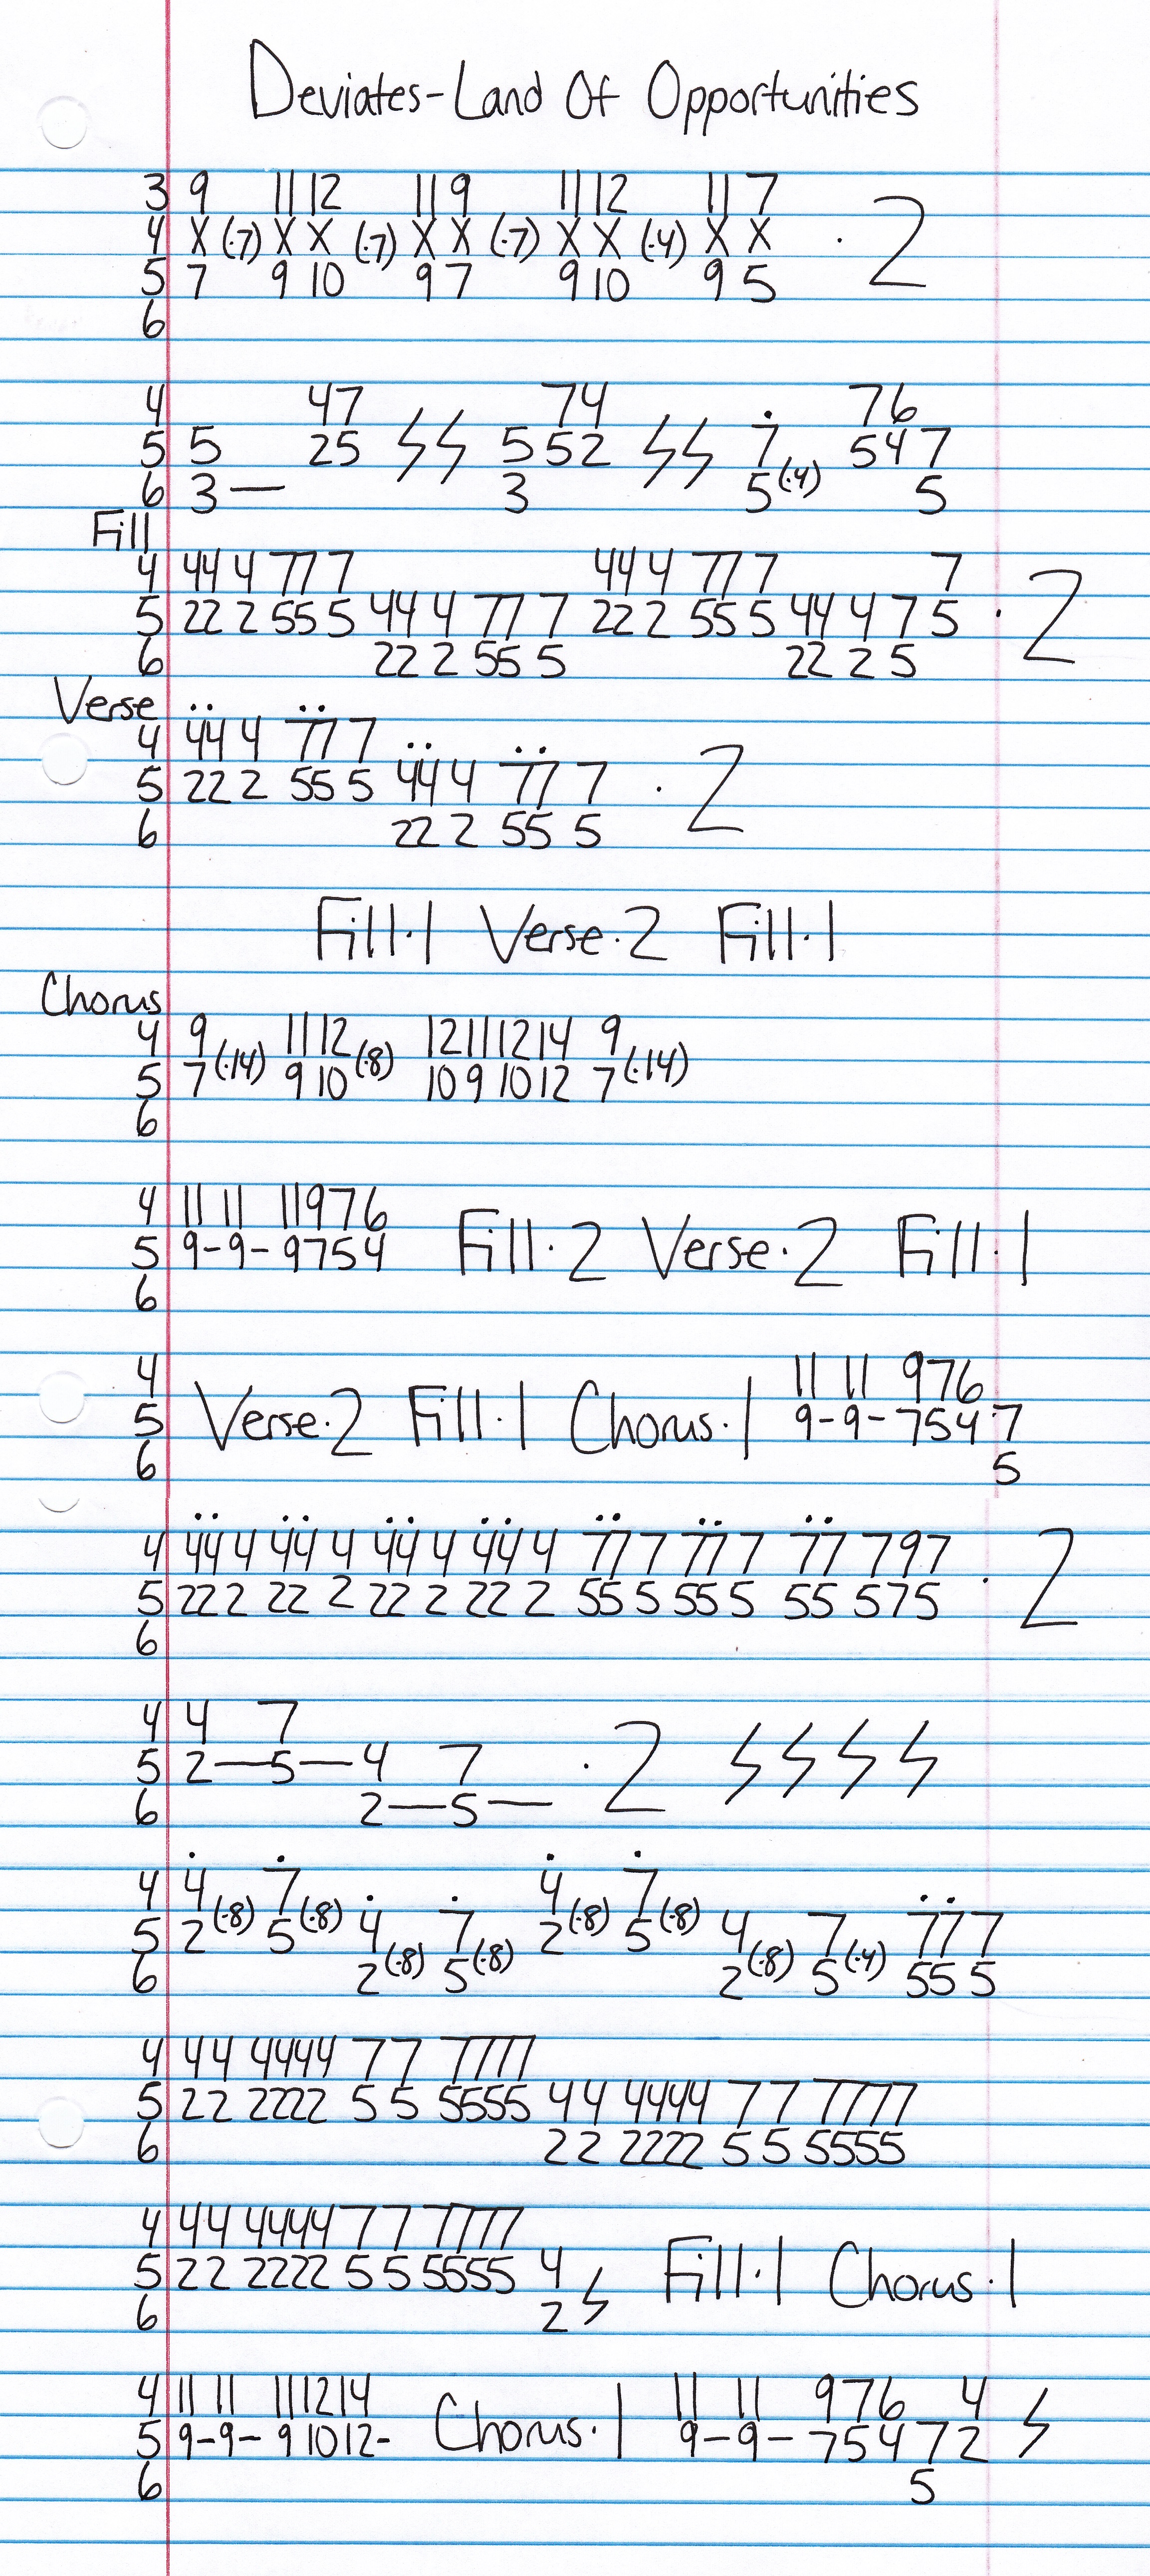 Deviates-Land Of Opportunities
3 9 11 12 11 9 11 12 11 7
4 X (·7) X X (·7) X X (·7) X X (·4) X X · 2
5 7 9 10 9 7 9 10 9 5
6
4 4 7 7 4 7 6
5 5 2 5 ϟ ϟ 5 5 2 ϟ ϟ 7̇ 5 4 7
6 3 — 3 5 (·4) 5
Fill
4 44 4 77 7 44 4 77 7 7
5 22 2 55 5 44 4 77 7 22 2 55 5 44 4 7 5 · 2
6 22 2 55 5 22 2 5
Verse
4 4̇4̇ 4 7̇7̇ 7
5 22 2 55 5 4̇4̇ 4 7̇7̇ 7 · 2
6 22 2 55 5
Fill·1 Verse·2 Fill·1
Chorus
4 9 (·14) 11 12 (·8) 12 11 12 14 9 (·14)
5 7 9 10 10 9 10 12 7
6
4 11 11 11 9 7 6
5 9-9-9 7 5 4 Fill·2 Verse·2 Fill·1
6
4 11 11 9 7 6
5 Verse·2 Fill·1 Chorus·1 9-9-7 5 4 7
6 5
4 4̇4̇ 4 4̇4̇ 4 4̇4̇ 4 4̇4̇ 4 7̇7̇ 7 7̇7̇ 7 7̇7̇ 7 9 7
5 22 2 22 2 22 2 22 2 55 5 55 5 55 5 7 5 · 2
6
4 4 7
5 2—5—4 7 · 2 ϟ ϟ ϟ ϟ
6 2—5—
4 4̇ (·8) 7̇ (·8) 4̇ (·8) 7̇ (·8)
5 2 5 4̇ (·8) 7̇ (·8) 2 5 4 (·8) 7 (·4) 7̇7̇ 7
6 2 5 2 5 55 5
4 4 4 4444 7 7 7777
5 2 2 2222 5 5 5555 4 4 4444 7 7 7777
6 2 2 2222 5 5 5555
4 4 4 4444 7 7 7777
5 2 2 2222 5 5 5555 4 ϟ Fill·1 Chorus·1
6 2
4 11 11 11 12 14 11 11 9 7 6 4
5 9-9-9 10 12- Chorus·1 9-9-7 5 4 7 2 ϟ
6 5